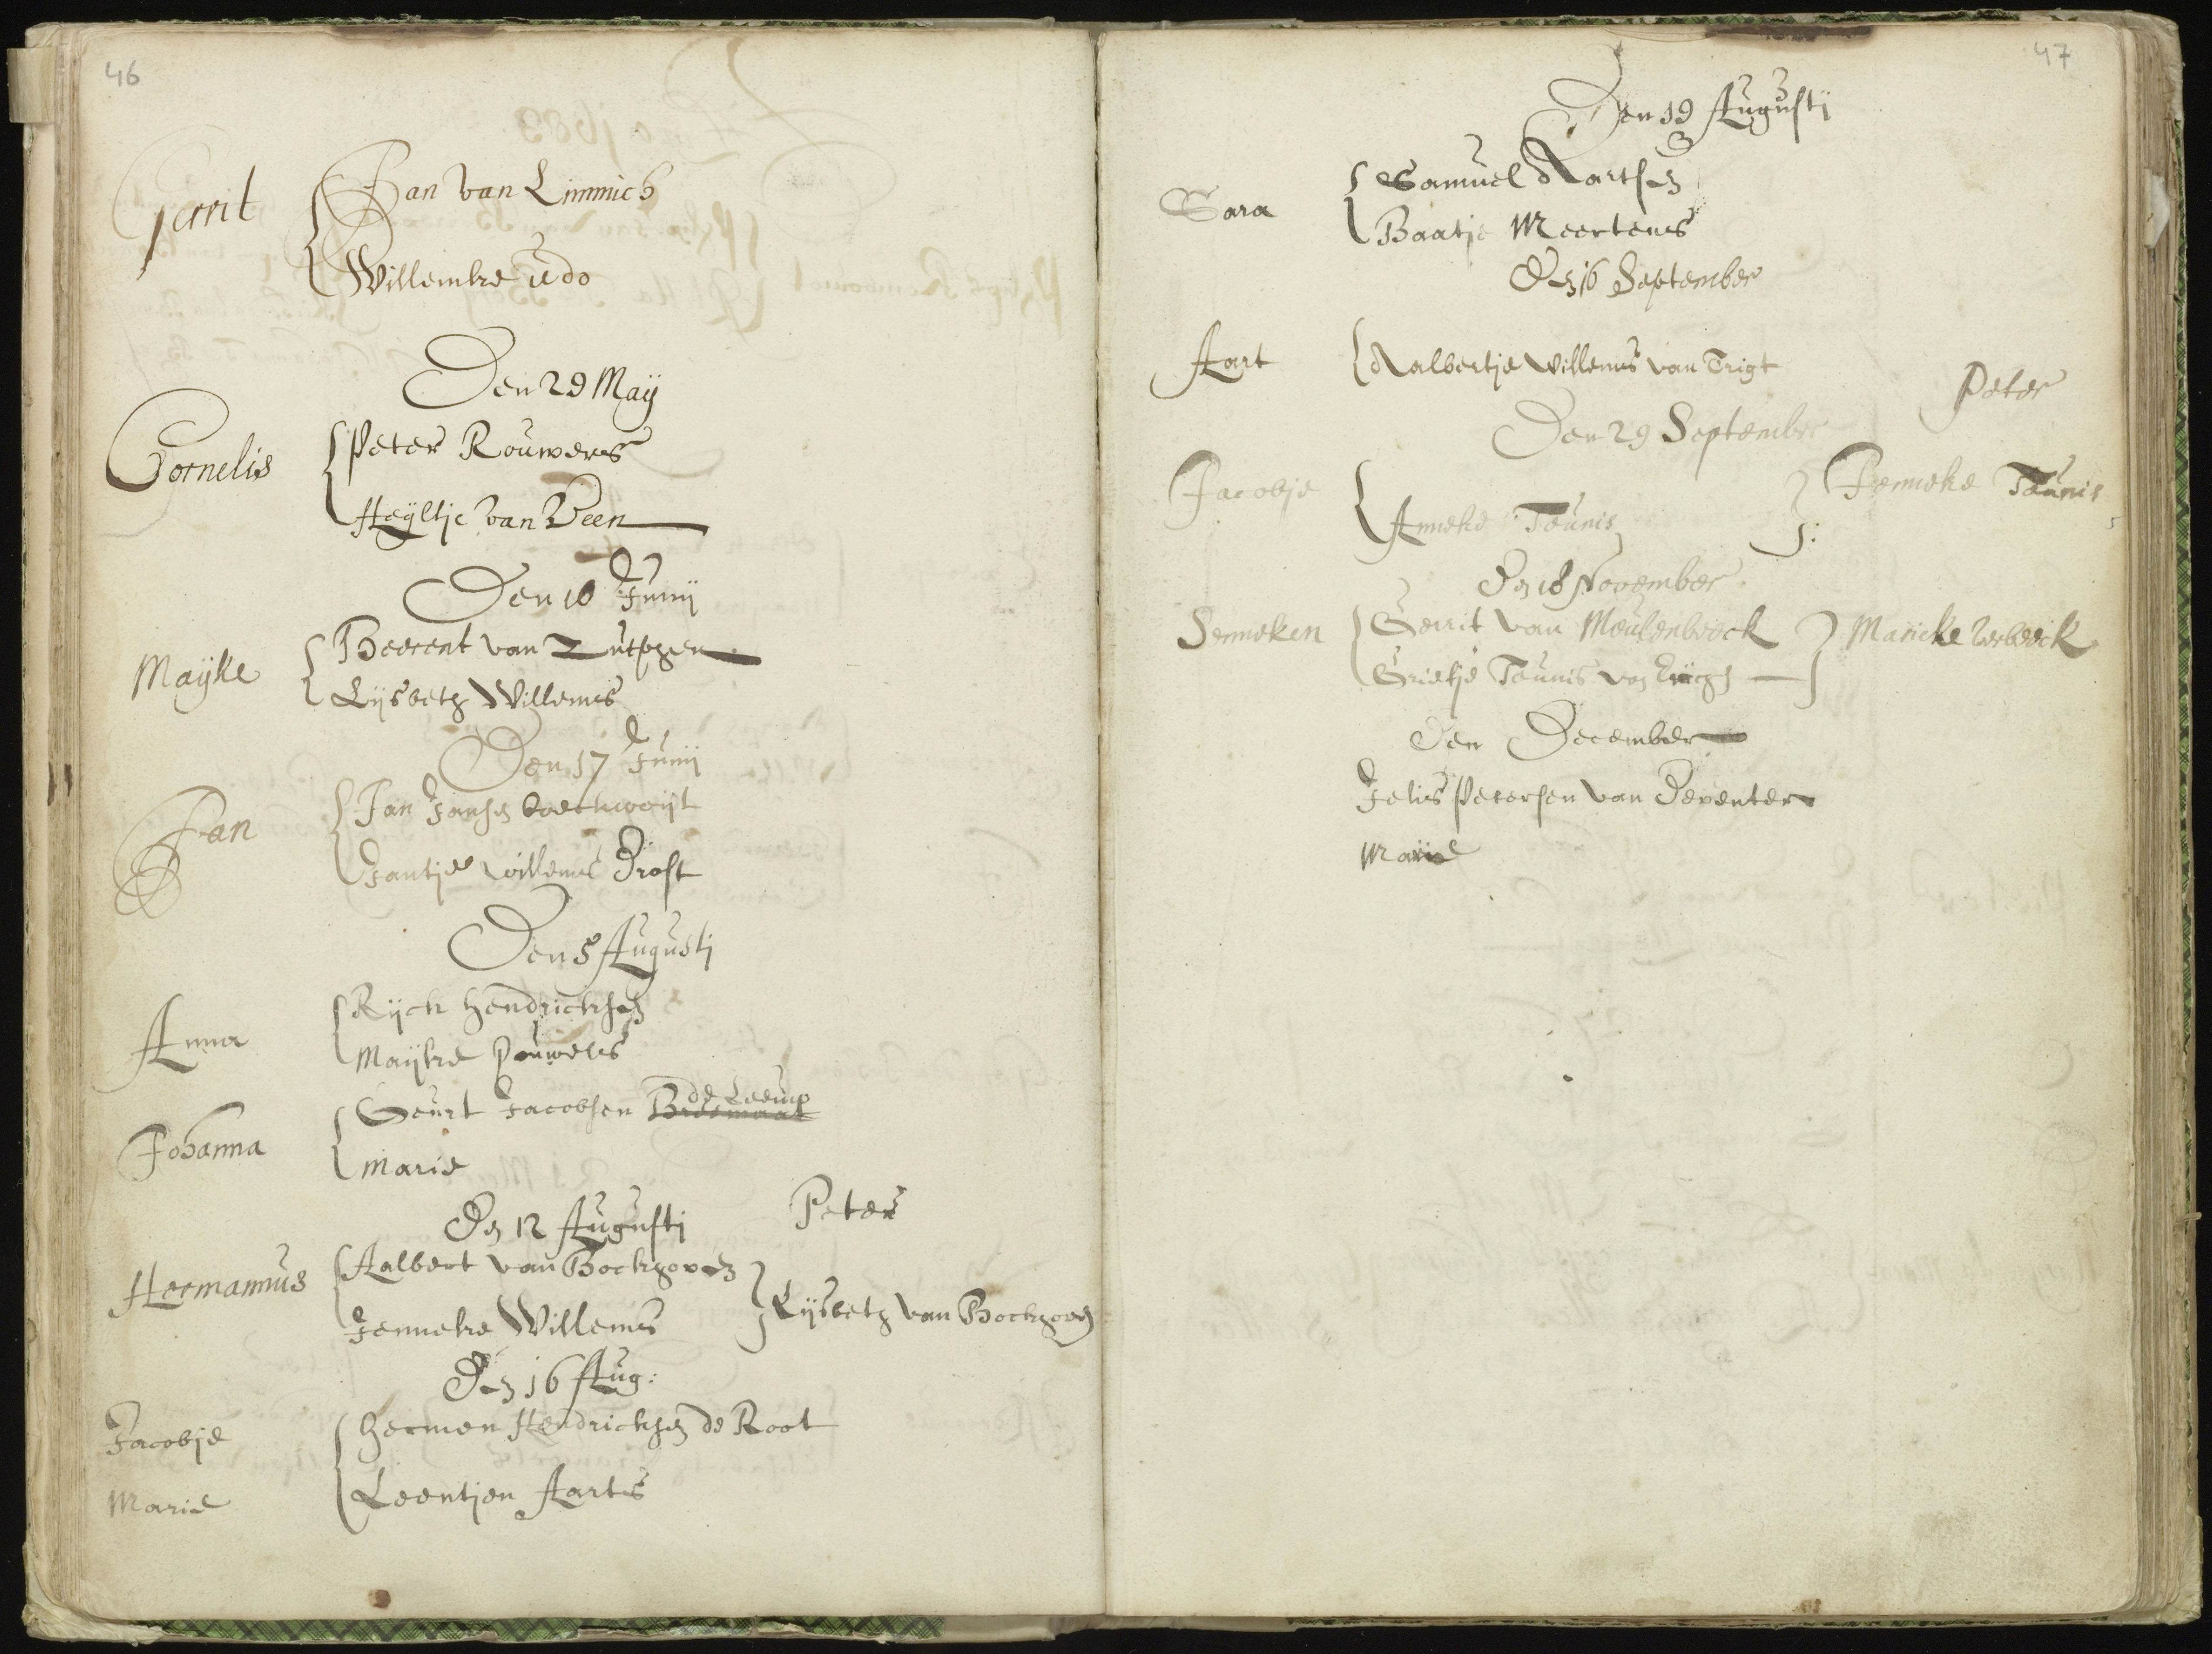 46
Gerrit
Jan van Limmich
Willemke Udo
Den 29 Maij
Cornelis
Peter Rouwers
Heijltje van Veen
Den 10 Junij
Maijke
Beerent van Zutphen
Lijsbeth Willems
Den 17 Junij
Jan
Jan Jansen
Jantje Willems Drost
Den 5 Augusti
Anna
Rijck Hendricksen
Maijke Pouwels
de Leeuw
Johanna
Geurt Jacobsen
Marie
Den 12 Augusti
Peter
Hermannus
Aalbert van Bockhoven
Jenneke Willems
Lijsbeth van Bockhoven
Den 16 Aug:
Jacobje
Hermen Hendricksen de Root
Marie
Leentjen Aarts
47
Den 19 Augusti
Sara
Samuel Aartsen
Baatje Meertens
Den 16 September
Aart
Aalbertje Willems van Trigt
Peter
Den 29 September
Jacobje
Anneke Teunis
Jenneke Teunis
Den 18 November
Senneken
Gerrit van Meulenbeeck
Marieke Verbeeck
Grietje Teunis van
Den December
Jelis Petersen van Deventer
Marie